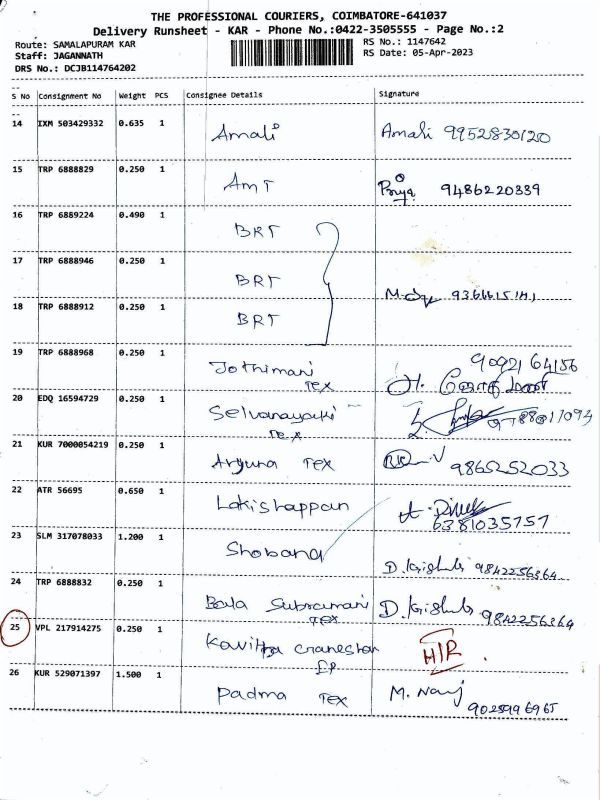 THE PROFESSIONAL COURIERS, COIMBATORE-641037
Delivery Runsheet - KAR - Phone No.:0422-3505555 - Page No.:2
Route: SAMALAPURAM KAR RS No.: 1147642
Staff: JAGANNATH RS Date: 05-Apr-2023
DRS No.: DCJB114764202
S No Consignment No Weight PCS Consignee Details Signature
14 IXM 503429332 0.635 1 Amali Amali 9952830120
15 TRP 6888829 0.250 1 AMT Priya 9486220339
16 TRP 6889224 0.490 1 BRT
17 TRP 6888946 0.250 1 BRT
18 TRP 6888912 0.250 1 BRT
19 TRP 6888968 0.250 1 Jothimani 9092164156
TEX ஜோதிமணி
20 EDQ 16594729 0.250 1 Selvanayaki
TEX
21 KUR 7000054219 0.250 1 Arjuna TEX 9865252033
22 ATR 56695 0.650 1 Lakishappan
6381035757
23 SLM 317078033 1.200 1 Shobana 9842256364
24 TRP 6888832 0.250 1 Bala Subramani 9842256364
TEX
25 VPL 217914275 0.250 1 Kavitha HIR
26 KUR 529071397 1.500 1 Padma TEX M.